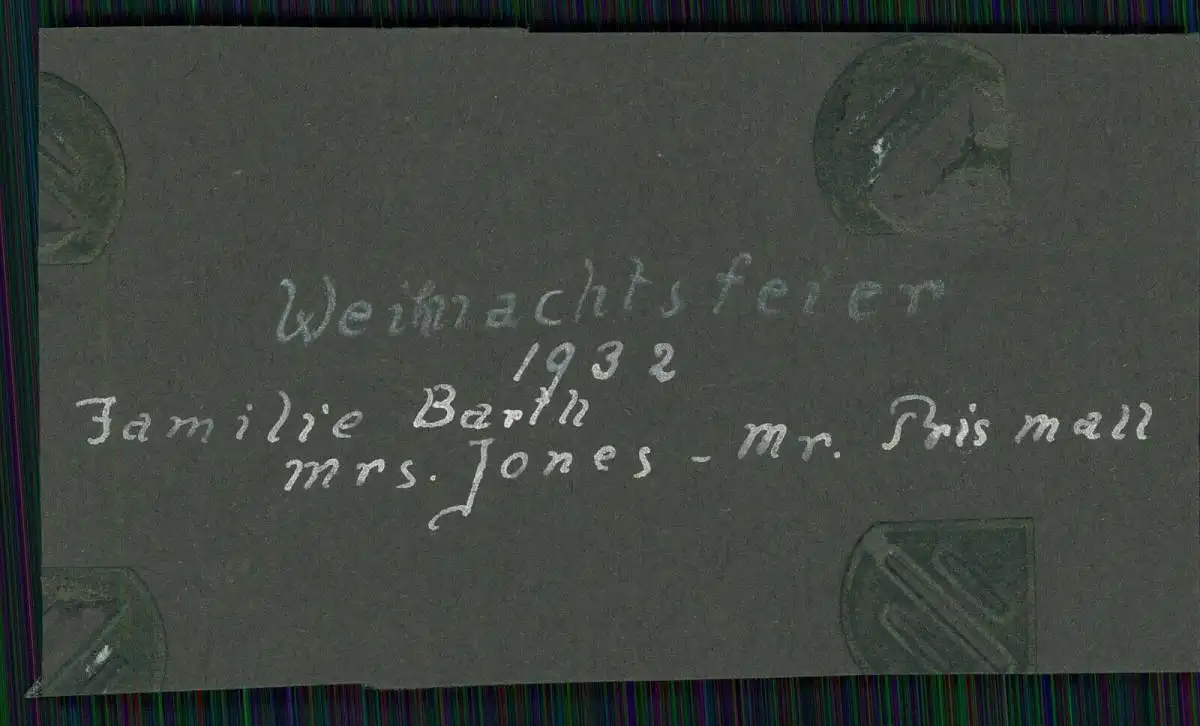 Weihnachtsfeier
1932
Familie Barth
Mrs. Jones - Mr. Prismall